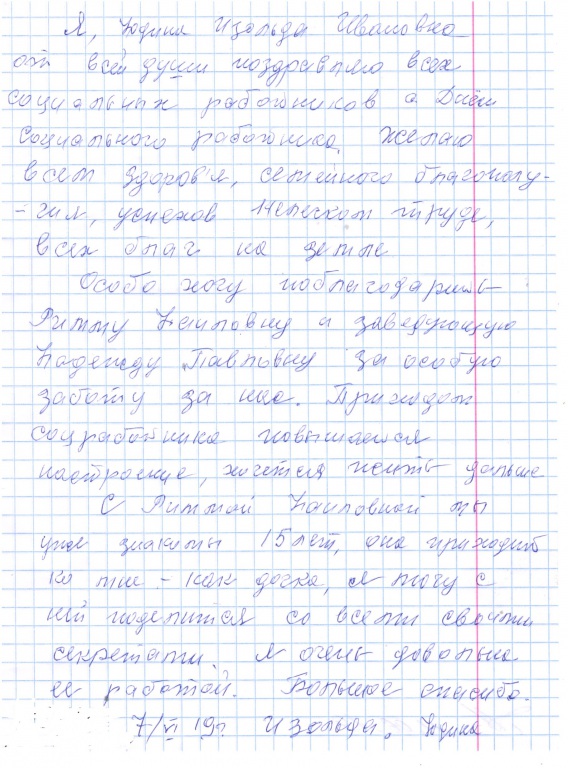 Я, Юдина Изольда Ивановна
от всей души поздравляю всех
социальных работников с Днём
социального работника. Желаю
всем здоров'я, семейного благополу-
-чия, успехов Нелегком труде,
всех благ на земле
Особо хочу поблагодарить
Римму Наиловну и заведующую
Надежду Павловну за особую
заботу за нас. Приходом
соцработника повышается
настроение, хочется жить дальше
С Риммой Наиловной мы
уже знакомы 15 лет, она приходит
ко мне - как дочка, я могу с
ней поделится со всеми своими
секретами. Я очень довольна
ее работой. Большое спасибо.
7/VI 19г Изольда. Юдина